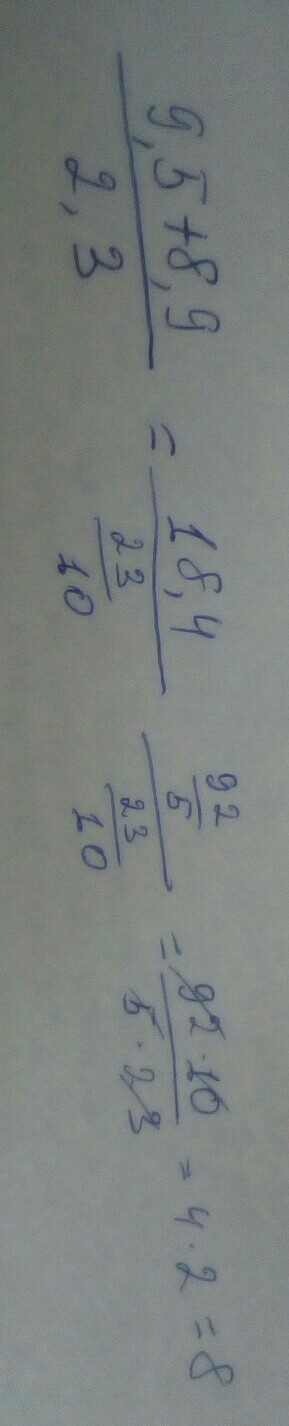 \frac{9,5+8,9}{2,3} = \frac{18,4}{\frac{23}{10}} \frac{\frac{92}{5}}{\frac{23}{10}} = \frac{92 \cdot 10}{5 \cdot 23} = 4 \cdot 2 = 8